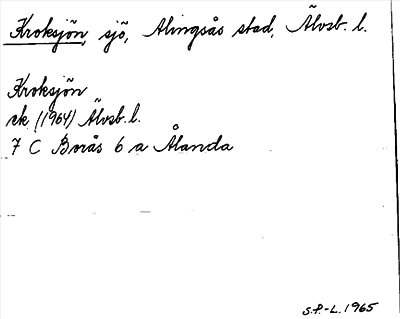 Kroksjön, sjö, Alingsås stad, Älvsb. l.
Kroksjön
ek (1964) Älvsb. l.
7 C Borås 6 a Ålanda
S.P.-L. 1965